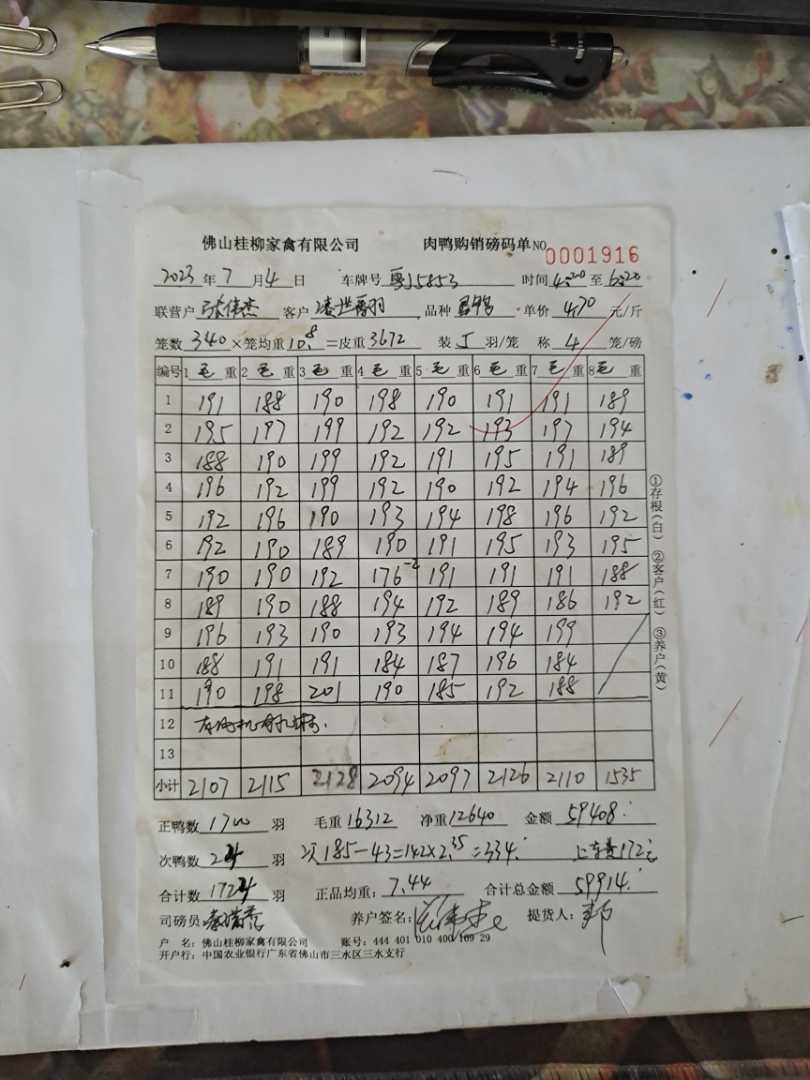 佛山桂柳家禽有限公司 肉鸭购销磅码单 NO 0001916
2023 年 7 月 4 日 车牌号 粤J5853 时间 至
联营户 张伟杰 客户 品种 单价 4.70 元/斤
笼数 340 ×笼均重 10.8 =皮重 3672 装 5 羽/笼 称 4 笼/磅
编号 1 毛 重 2 毛 重 3 毛 重 4 毛 重 5 毛 重 6 毛 重 7 毛 重 8 毛 重
1 191 188 190 198 190 191 191 189
2 195 197 199 192 192 193 197 194
3 188 190 199 192 191 195 191 189
4 196 192 199 192 190 192 194 196
5 192 196 190 193 194 198 196 192
6 192 190 189 190 191 195 193 195
7 190 190 192 176-2 191 191 191 188
8 189 190 188 194 192 189 186 192
9 196 193 190 193 194 194 199
10 188 191 191 184 187 196 184
11 190 198 201 190 185 192 188
12
13
小计 2107 2115 2128 2094 2097 2126 2110 1535
正鸭数 1700 羽 毛重 16312 净重 12640 金额 59408.
次鸭数 24 羽 次185-43=142×2.35=334. 上车费172元
合计数 1724 羽 正品均重: 7.44 合计总金额 59914.
司磅员 养户签名: 提货人:
户 名: 佛山桂柳家禽有限公司 账号: 444 401 010 400 169 29
开户行: 中国农业银行广东省佛山市三水区三水支行
①存根(白) ②客户(红) ③养户(黄)